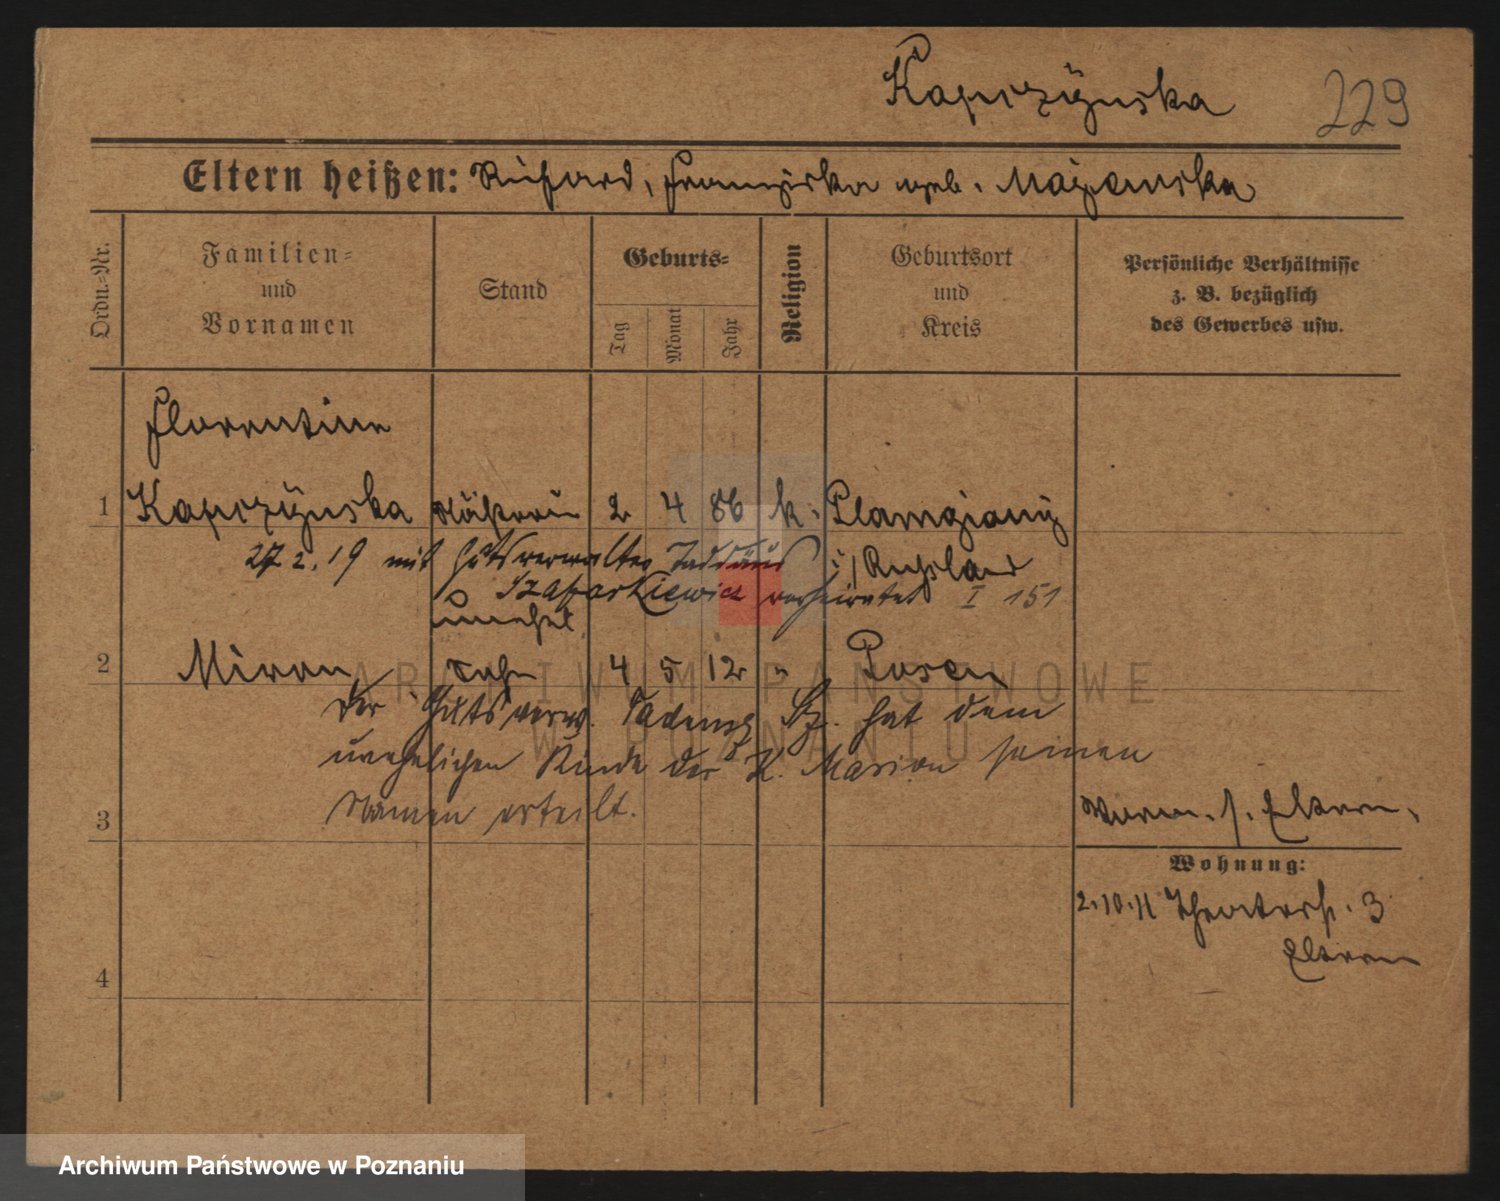 Kapczÿnska 229
Eltern heißen: Richard, Franziska geb. Mazanska
Ordn.-Nr.
Familien-
und
Vornamen
Stand
Geburts-
Tag
Monat
Jahr
Religion
Geburtsort
und
Kreis
Persönliche Verhältnisse
z. B. bezüglich
des Gewerbes usw.
Florentine
1 Kapczÿnska Näherin 2 4 86 k.
27. 2. 19 mit Gutsverwalter Taddäus i/Russland
verheiratet I 151
unehel
2 Miron Sohn 4 5 12 " Posen
Der Gutsverw. Sz. hat dem
unehelichen Kinde der K. Marion seinen
Namen erteilt.
3
Eltern.
Wohnung:
2.10.11 Theaterstr. 3
Eltern
4
ARCHIWUM PAŃSTWOWE
W POZNANIU
Archiwum Państwowe w Poznaniu